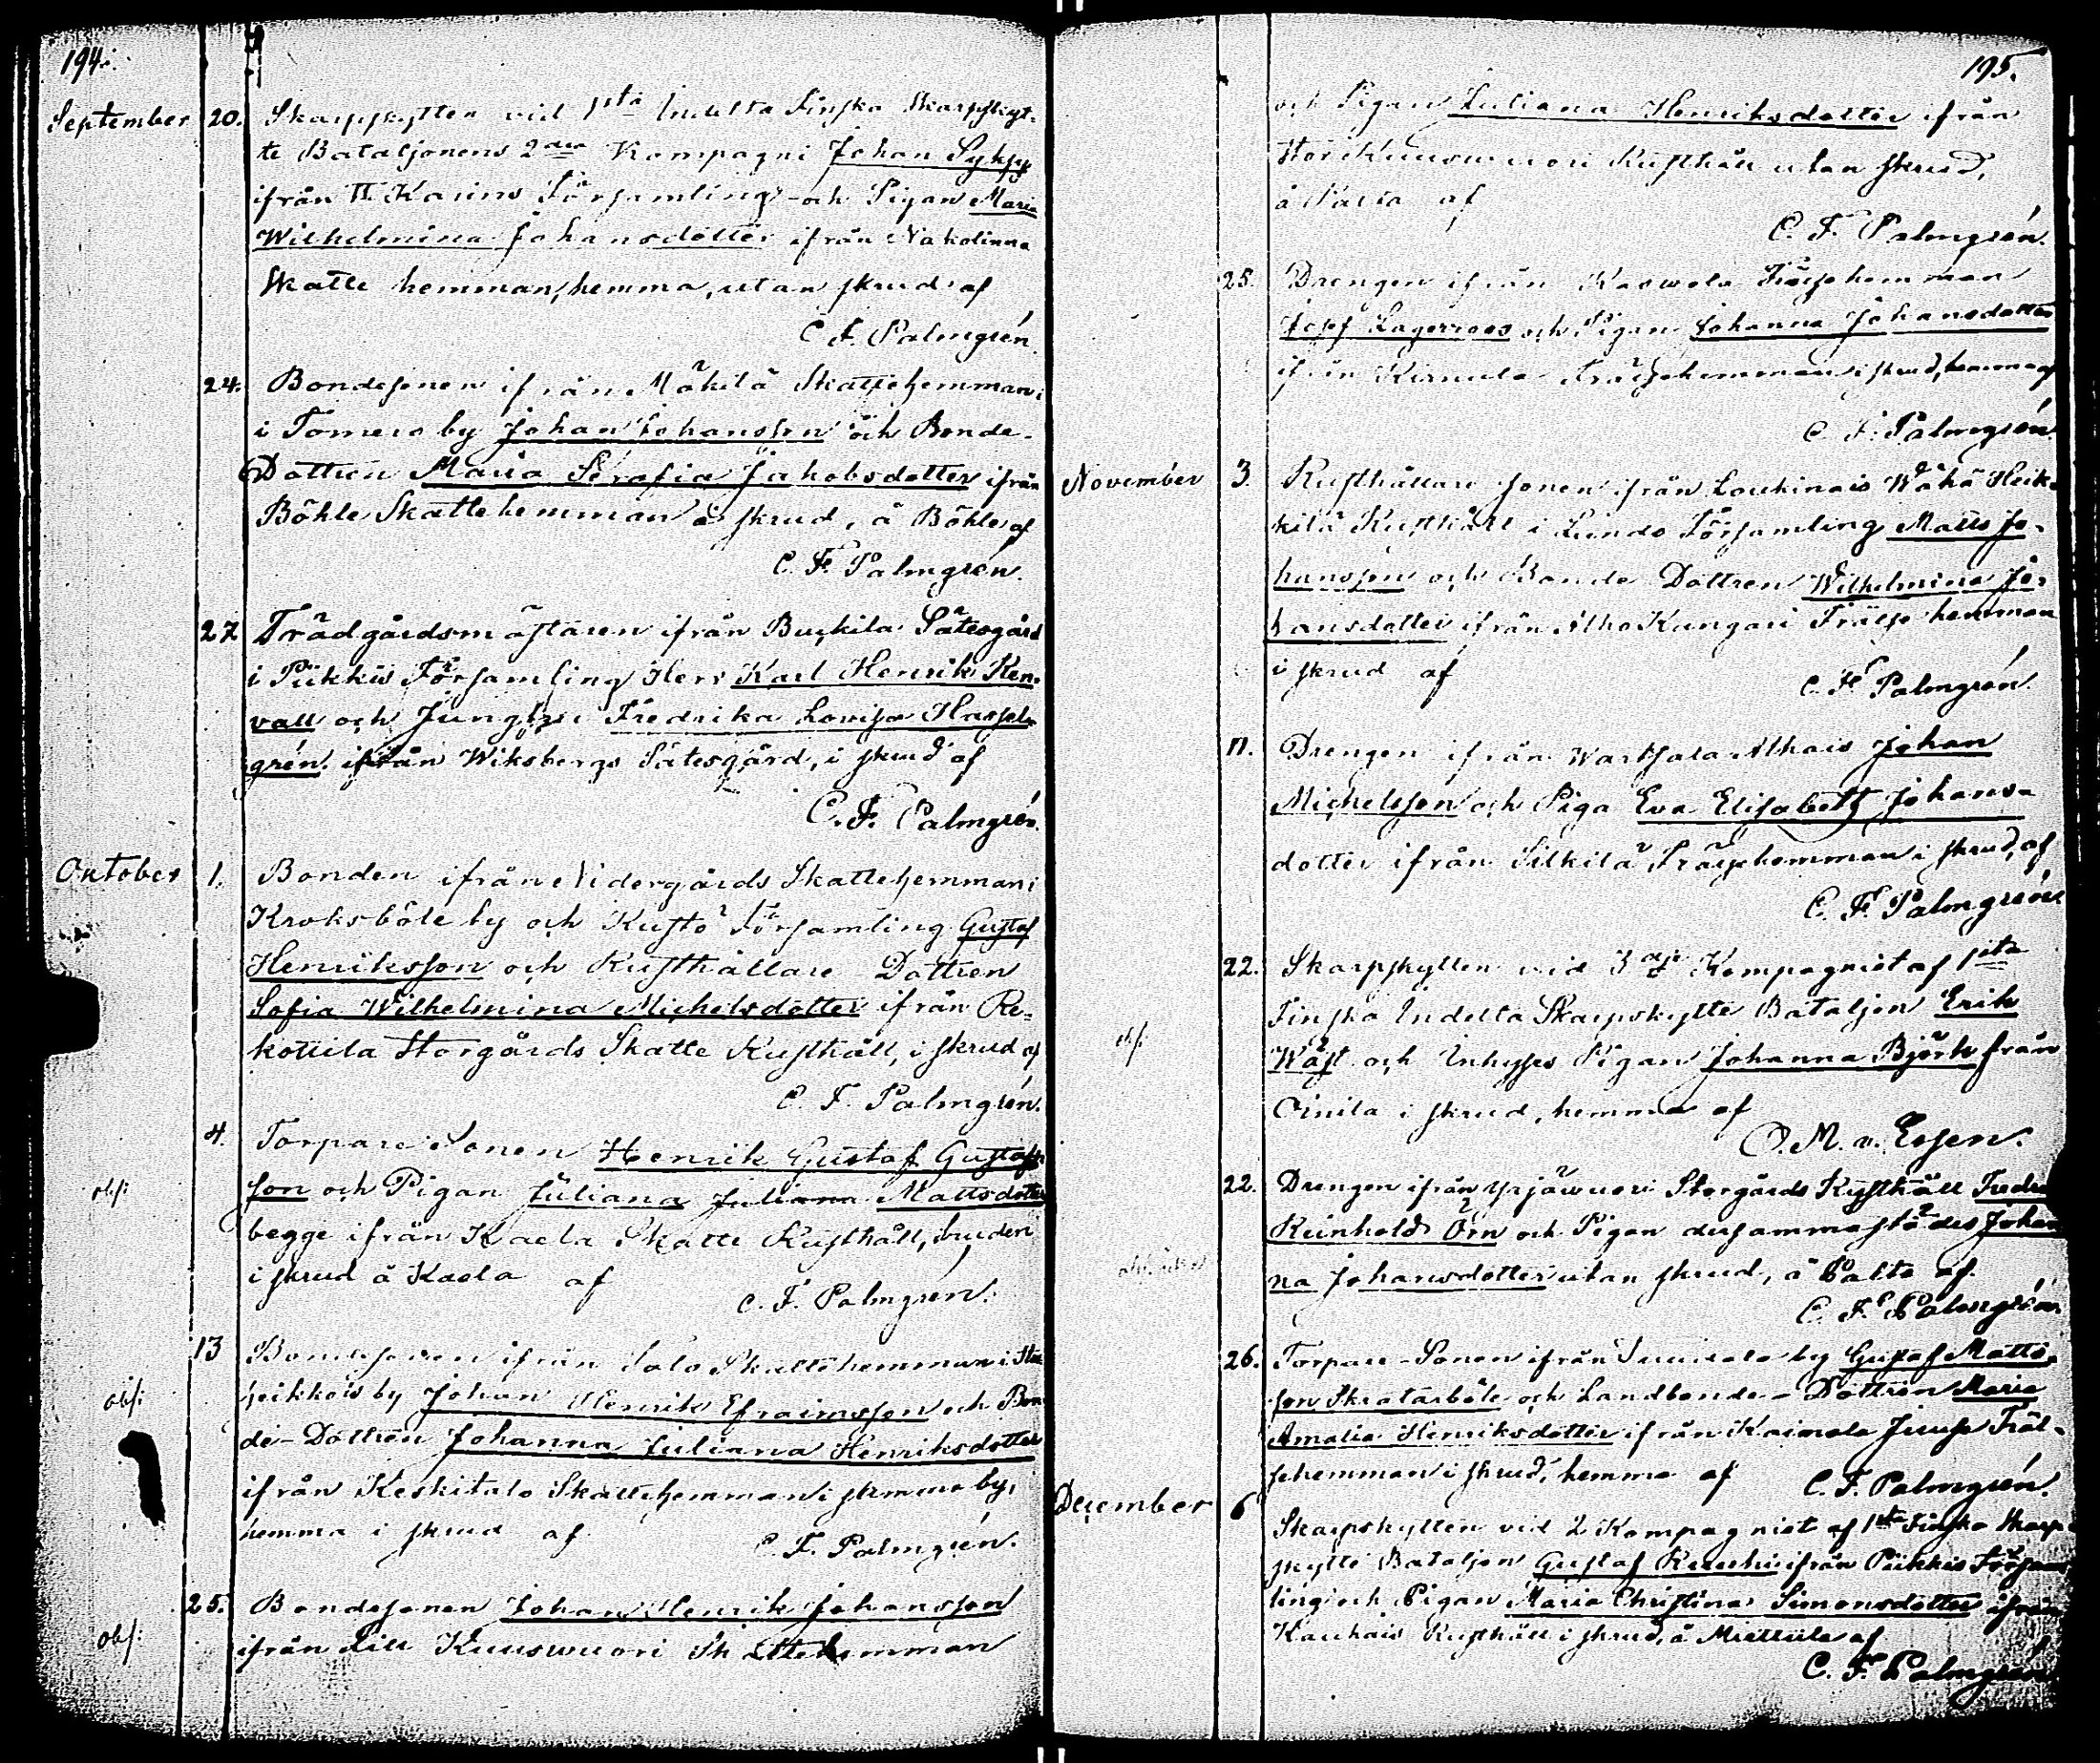 194.
September 20. Skarpskytten vid 1sta Indelta Finska Skarpskyt-
te Bataljonens 2dra Kompagni Johan Syksy
ifrån St Karins Församling och Pigan Maria
Wilhelmina Johansdotter ifrån Nakolinna
Skatte hemman, hemma, utan skrud af
C. F. Palmgrén.
24. Bondesonen ifrån Mäkilä Skattehemman
i Tomero by Johan Johansson och Bonde-
Dottren Maria Serafia Jakobsdotter ifrån
Böhle Skattehemman i skrud, å Böhle af
C. F. Palmgrén.
27 Trädgårdsmästaren ifrån Buskila Sätesgård
i Piikkis Församling Herr Karl Henrik Ren-
vall och Jungfru Fredrika Lovisa Hassel-
grén ifrån Wiksbergs Sätesgård, i skrud af
C. F. Palmgrén.
Oktober 1. Bonden ifrån Nidergårds Skattehemman i
Kroksböle by och Kustö Församling Gustaf
Henriksson och Rusthållare Dottren
Sofia Wilhelmina Michelsdotter ifrån Re-
kottila Storgårds Skatte Rusthåll, i skrud af
C. F. Palmgrén.
4. Torpare Sonen Henrik Gustaf Gustafs-
obs: son och Pigan Juliana Juliana Mattsdotter
begge ifrån Kaela Skatte Rusthåll, bruden
i skrud å Kaela af
C. F. Palmgrén.
13 Bondesonen ifrån Talo Skattehemman i
obs: by Johan Henrik Efraimsson och Bon-
de-Dottren Johanna Juliana Henriksdotter
ifrån Keskitalo Skattehemman i samma by,
hemma i skrud af
C. F. Palmgrén.
25. Bondesonen Johan Henrik Johansson
obs: ifrån Lill Kuuswuori Skattehemman
195.
och Pigan Juliana Henriksdotter ifrån
Stor Kuuswuori Rusthåll utan skrud,
å af
C. F. Palmgrén.
25. Drengen ifrån Raswala Frälsehemman
Josef Lagerroos och Pigan Johanna Johansdotter
ifrån Kirmula Frälsehemman i skrud, hemma af
C. F. Palmgrén.
November 3. Rusthållare sonen ifrån Loukinais Wähä Heik-
kilä Rusthåll i Lundo Församling Matts Jo-
hansson och Bonde Dottren Wilhelmina Jo-
hansdotter ifrån Alho Kangari Frälse hemman
i skrud af
C. F. Palmgrén.
11. Drengen ifrån Wartsala Alhais Johan
Michelsson och Piga Eva Elisabeth Johans-
dotter ifrån Silkilä Frälsehemman i skrud, af
C. F. Palmgrén
22. Skarpskytten vid 3dje Kompagniet af 1sta
Finska Indelta Skarpskytte Bataljon Erik
obs: Wäst och Inhyses Pigan Johanna Björk från
Oinila i skrud, hemma af
O. M. v. Essen.
22. Drengen ifrån Yrjäwuori Storgårds Rusthåll Fredr
Reinhold Örn och Pigan dersammastädes Johan
na Johansdotter utan skrud, å Palta af
C. F. Palmgrén
26. Torpare-Sonen ifrån by Gustaf Matts-
son Skratarböle och Landbonde-Dottren Maria
Amalia Henriksdotter ifrån Raimala Juusa Fräl-
sehemman i skrud, hemma af C. F. Palmgrén.
December 6 Skarpskytten vid 2 Kompagniet af 1sta Finska Skarp-
skytte Bataljon Gustaf Ruuska ifrån Piikkis Försam
ling och Pigan Maria Christina Simonsdotter ifrån
Kaukais Rusthåll i skrud, å Miettula af
C. F. Palmgrén